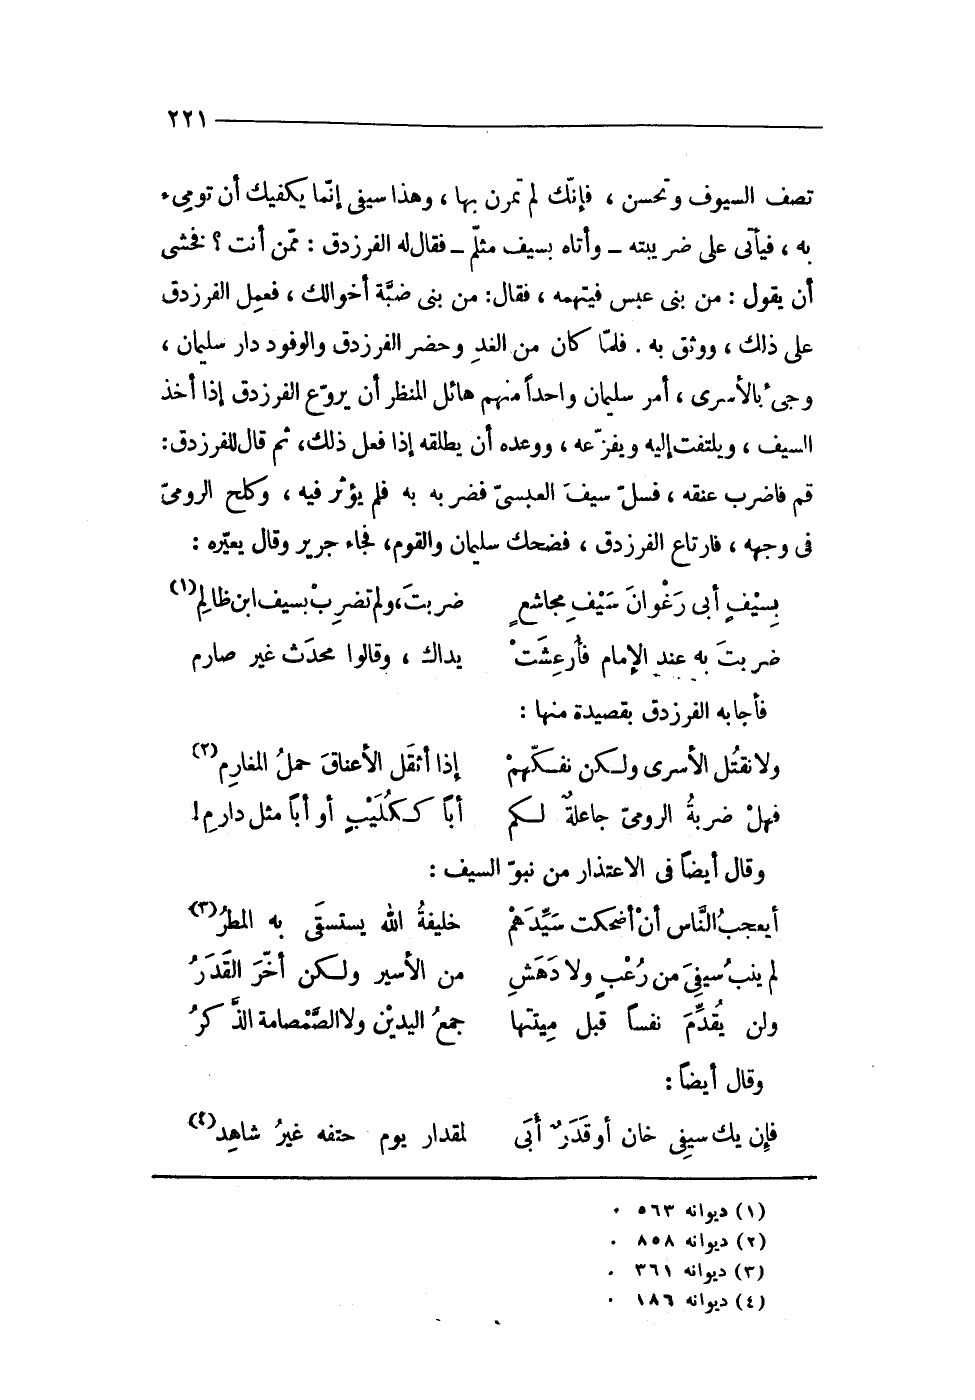 ٢٢١
تصف السيوف وتحسن ، فإنّك لم تمرن بها ، وهذا سيفى إنّما يكفيك أن تومىء
به ، فيأتى على ضريبته ــ وأتاه بسيف مثلّم ــ فقال له الفرزدق : ممّن أنت ؟ فخشى
أن يقول : من بنى عبس فيتهمه ، فقال: من بنى ضبَّة أخوالك ، فعمِل الفرزدق
على ذلك ، ووثق به . فلمّا كان من الغدِ وحضر الفرزدق والوفود دار سليمان ،
وجىُ بالأسرى ، أمر سليمان واحداً منهم هائل المنظر أن يروّع الفرزدق إذا أخذ
السيف ، ويلتفت إليه ويفزّعه ، ووعده أن يطلقه إذا فعل ذلك، ثم قال للفرزدق:
قم فاضرب عنقه ، فسلّ سيفَ العبسىّ فضربه به فلم يؤثر فيه ، وكلح الرومىّ
فى وجهه ، فارتاع الفرزدق ، فضحك سليمان والقوم، فجاء جرير وقال يعيّره :
بِسيْفِ أبى رَغْوانَ سَيْفِ مجاشعٍ ضربتَ،ولم تضربْ بسيف ابن ظالمِ(١)
ضربتَ به عند الإمام فأُرعِشَتْ يداك ، وقالوا محدَث غير صارم
فأجابه الفرزدق بقصيدة منها :
ولا نقتُل الأسرى ولكن نفكّهمْ إذا أثقَل الأعناقَ حملُ المغارِم(٢)
فهلْ ضربةُ الرومىّ جاعلةٌ لكم أباً ككُلَيْبٍ أو أباً مثل دارمِ!
وقال أيضاً فى الاعتذار من نبوّ السيف :
أيعجبُ النَّاس أنْ أضحكت سَيِّدَهمْ خليفةُ الله يستسقَى به المطرُ(٣)
لم ينبُ سيفىَ من رُعْبٍ ولا دَهَشٍ من الأسير ولكن أخّرَ القَدَرُ
ولن يُقدِّمَ نفساً قبل مِيتتها جمعُ اليديْن ولا الصَّمْصامة الذَّكرُ
وقال أيضاً :
فإِن يك سيفِى خان أو قَدَرٌ أبَى لمقدار يوم حتفه غيرُ شاهِد(٤)
(١) ديوانه ٥٦٣ .
(٢) ديوانه ٨٥٨ .
(٣) ديوانه ٣٦١ .
(٤) ديوانه ١٨٦ .